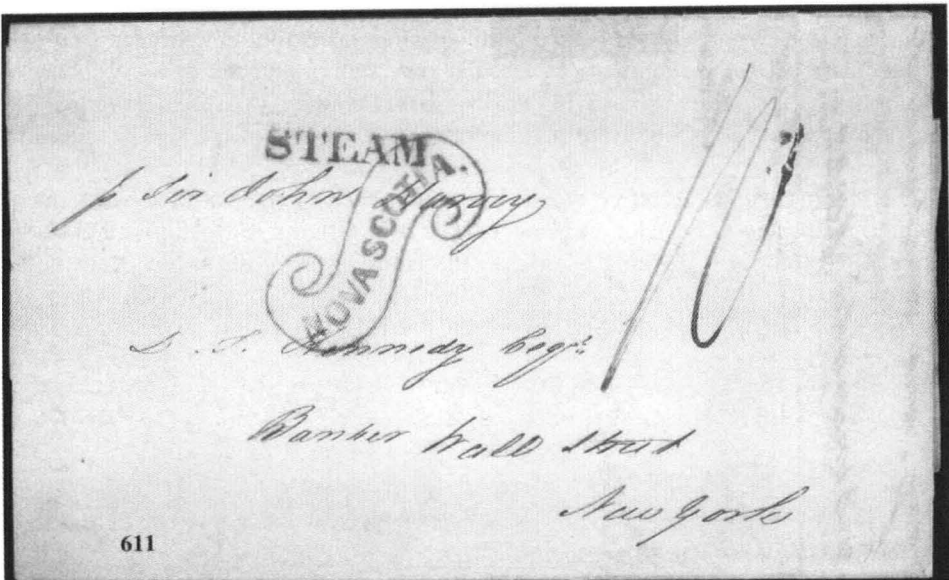 STEAM
NOVA SCOTIA.
p Sir John Harvey
10
D. S. Kennedy Esqr.
Banker Wall Street
New York
611